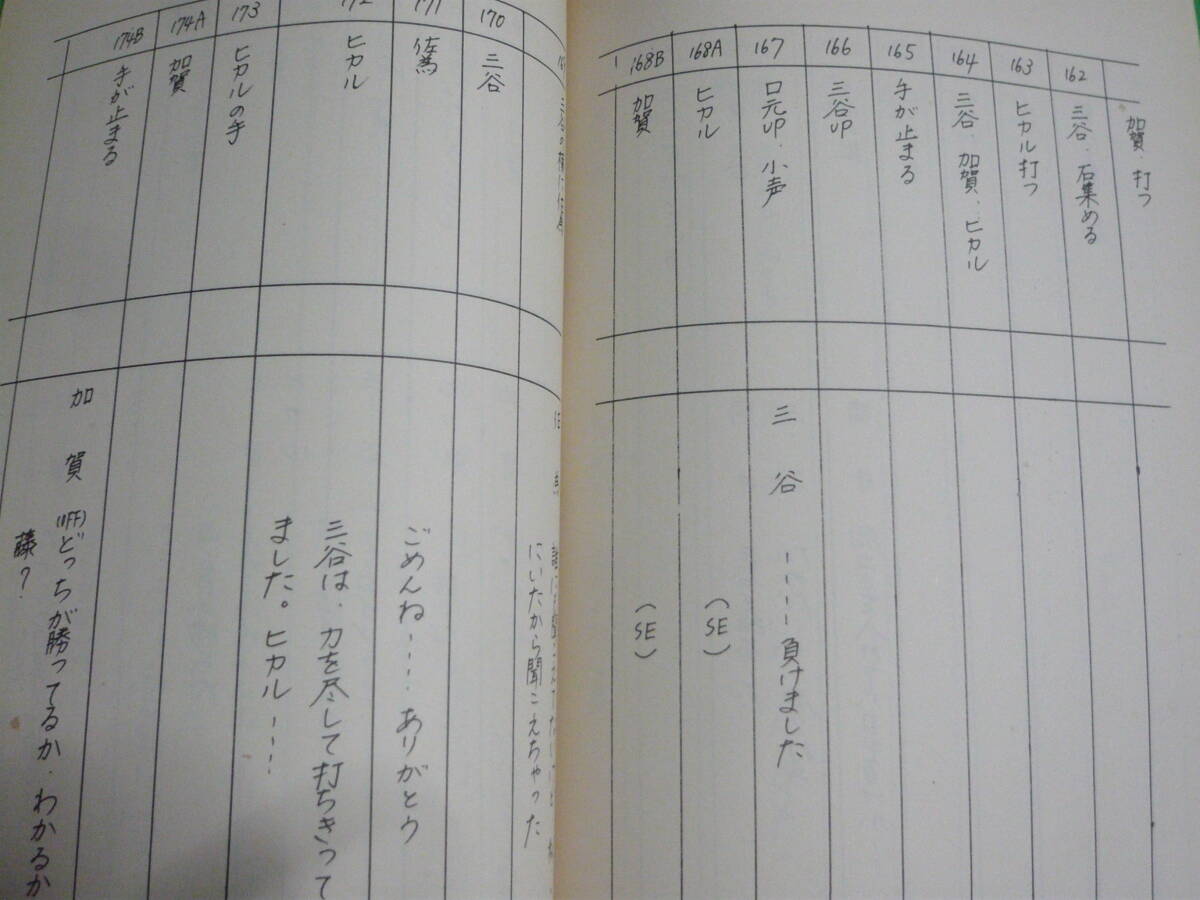 加賀、打つ
162
三谷、石集める
163
ヒカル打つ
164
三谷、加賀、ヒカル
165
手が止まる
166
三谷UP
167
口元UP、小声
三谷 ----負けました
168A
ヒカル
(SE)
168B
加賀
(SE)
にいたから聞こえちゃった
170
三谷
171
佐為
ごめんね----、ありがとう
172
ヒカル
三谷は、力を尽して打ちきって
ました。ヒカル----
173
ヒカルの手
174A
加賀
174B
手が止まる
加賀 (OFF)どっちが勝ってるか、わかるか
藤?